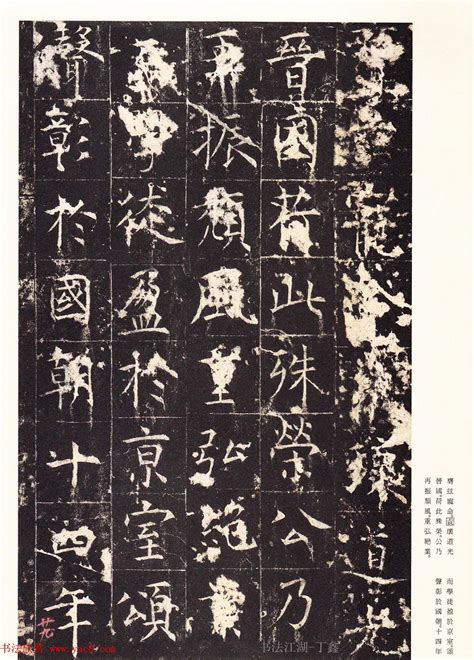 寵道光
晉國荷此殊榮公乃
再振頹風重弘業
而學徒盈於京室頌
聲彰於國朝十四年
膺茲寵命道光
晉國荷此殊榮公乃
再振頹風重弘絕業
而學徒盈於京室頌
聲彰於國朝十四年
书法江湖-丁鑫